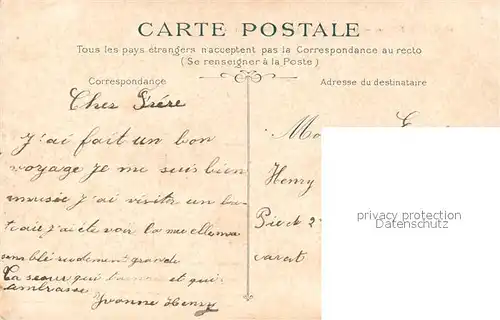 CARTE POSTALE
Tous les pays étrangers n'acceptent pas la Correspondance au recto
(Se renseigner à la Poste)
Correspondance
Adresse du destinataire
Cher Frére
J'ai fait un bon
voyage Je me suis bien
musie J'ai visité un ba
teau j'ai été voir la mu elle ma
sem blé rudement grande
Ta seour qui et qui
ambrasse
Yvonne Henry
Mo
Henry
Pie d 2
carat
privacy protection
Datenschutz